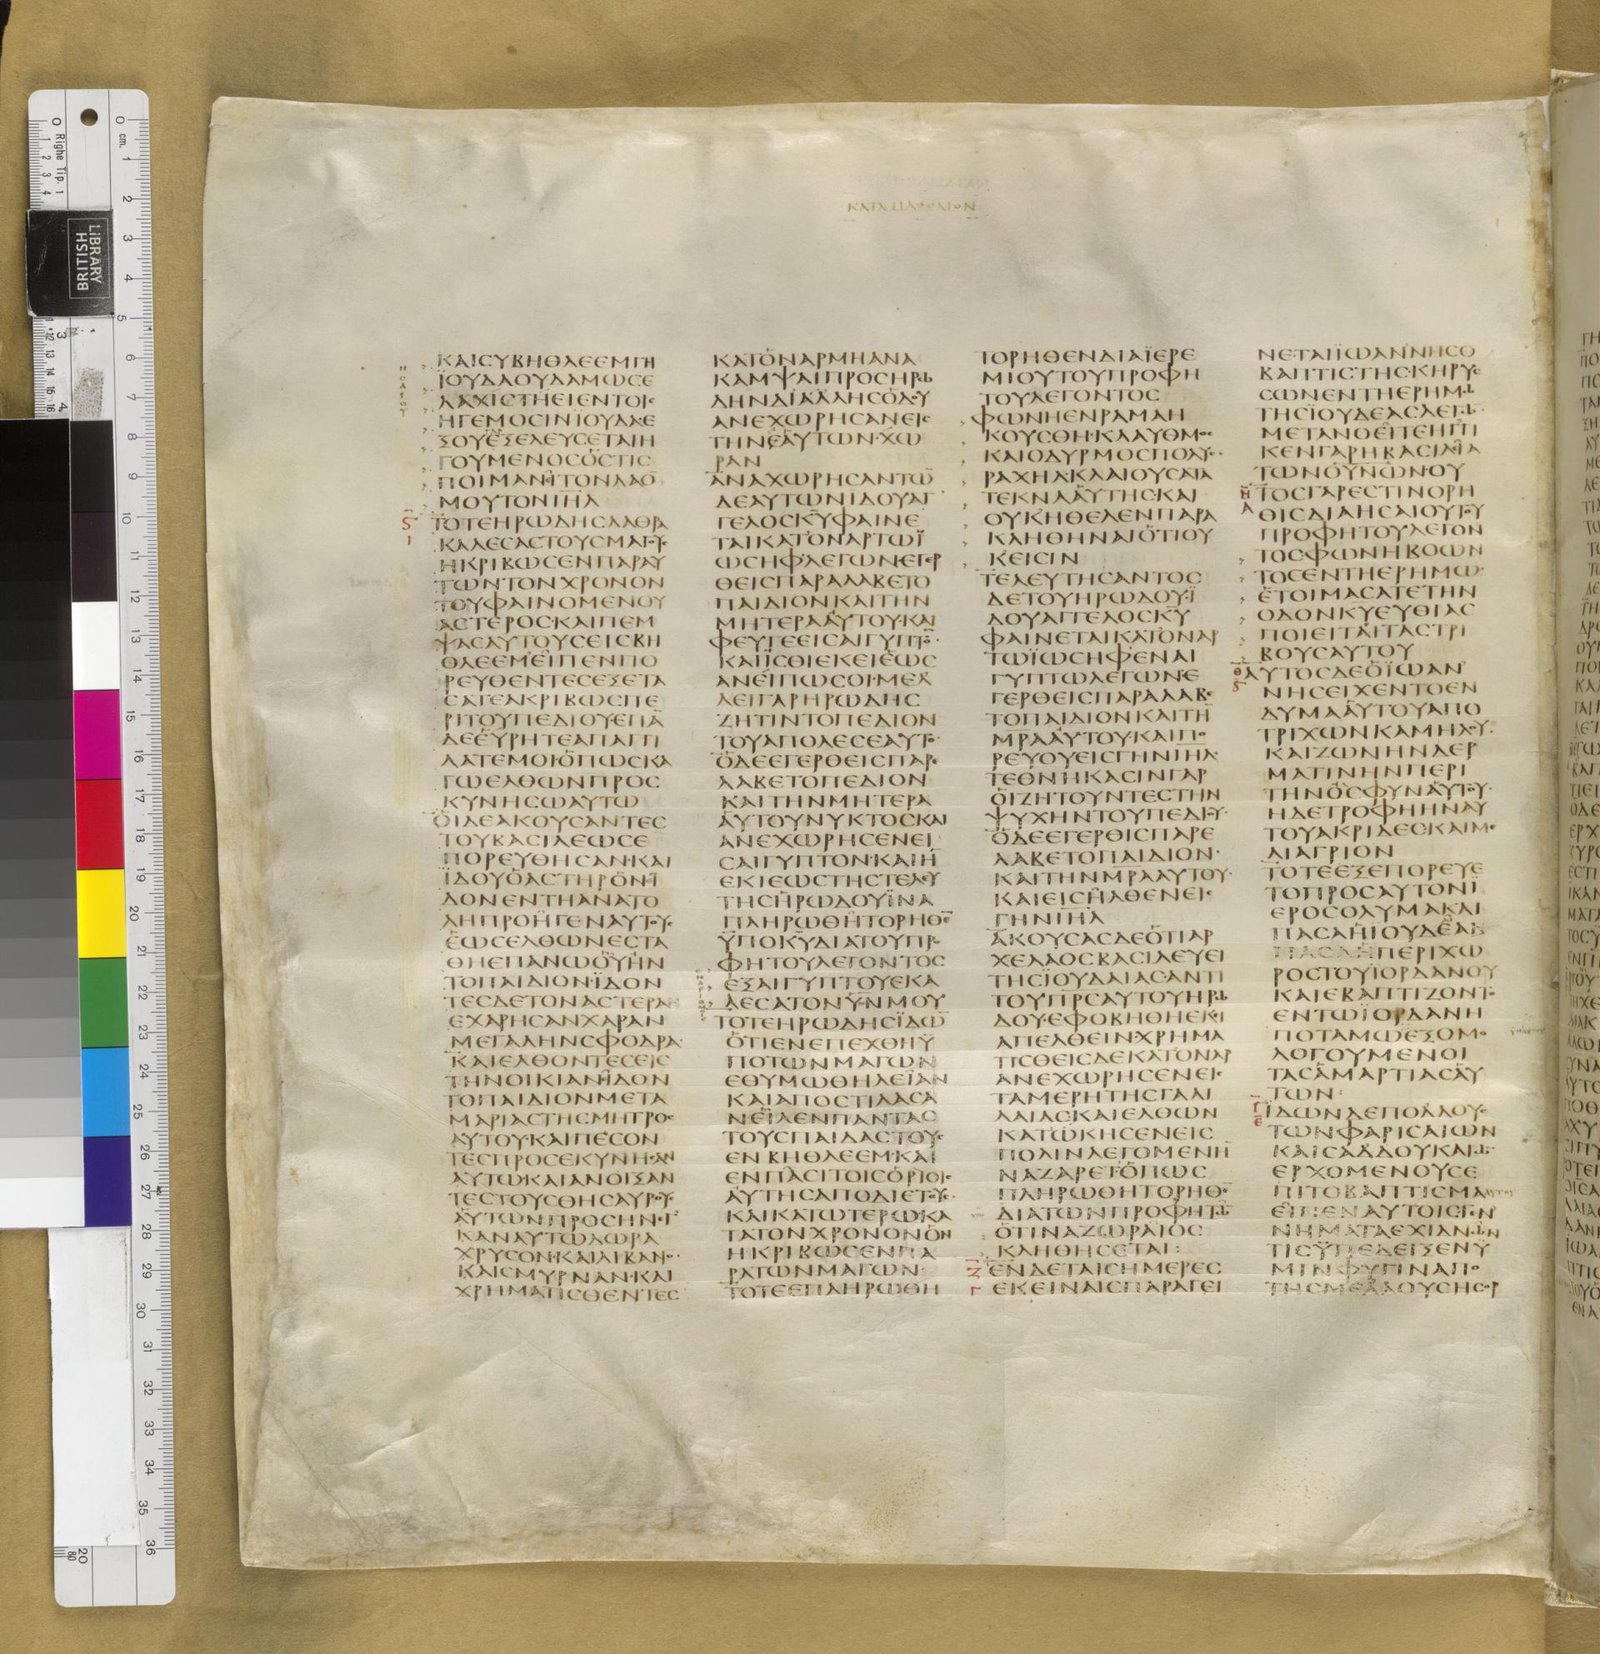 ΚΑΤΑ ΜΑΘΘΑΙΟΝ
ΚΑΙCΥΒΗΘΛΕΕΜΓΗ
ΪΟΥΔΑΟΥΔΑΜΩCΕ
ΛΑΧΙCΤΗΕΙΕΝΤΟΙC
ΗΓΕΜΟCΙΝΪΟΥΔΑΕ
ΞΟΥΕΞΕΛΕΥCΕΤΑΙΗ
ΓΟΥΜΕΝΟCΟCΤΙC
ΠΟΙΜΑΝΙΤΟΝΛΑΟ̅
ΜΟΥΤΟΝΙΗΛ
ΤΟΤΕΗΡΩΔΗCΛΑΘΡΑ
ΚΑΛΕCΑCΤΟΥCΜΑΓΟΥC
ΗΚΡΙΒΩCΕΝΠΑΡΑΥ
ΤΩΝΤΟΝΧΡΟΝΟΝ
ΤΟΥΦΑΙΝΟΜΕΝΟΥ
ΑCΤΕΡΟCΚΑΙΠΕΜ
ΨΑCΑΥΤΟΥCΕΙCΒΗ
ΘΛΕΕΜΕΙΠΕΝΠΟ
ΡΕΥΘΕΝΤΕCΕΞΕΤΑ
CΑΤΕΑΚΡΙΒΩCΠΕ
ΡΙΤΟΥΠΕΔΙΟΥΕΠΑ̅
ΔΕΕΥΡΗΤΕΑΠΑΓΓΙ
ΛΑΤΕΜΟΙΟΠΩCΚΑ
ΓΩΕΛΘΩΝΠΡΟC
ΚΥΝΗCΩΑΥΤΩ
ΟΙΔΕΑΚΟΥCΑΝΤΕC
ΤΟΥΒΑCΙΛΕΩCΕ
ΠΟΡΕΥΘΗCΑΝ·ΚΑΙ
ΪΔΟΥΟΑCΤΗΡΟΝΪ
ΔΟΝΕΝΤΗΑΝΑΤΟ
ΛΗΠΡΟΗΓΕΝΑΥΤΟΥC
ΕΩCΕΛΘΩΝΕCΤΑ
ΘΗΕΠΑΝΩΟΥΗΝ
ΤΟΠΑΙΔΙΟΝ·ΪΔΟΝ
ΤΕCΔΕΤΟΝΑCΤΕΡΑ
ΕΧΑΡΗCΑΝΧΑΡΑΝ
ΜΕΓΑΛΗΝCΦΟΔΡΑ
ΚΑΙΕΛΘΟΝΤΕCΕΙC
ΤΗΝΟΙΚΙΑΝΪΔΟΝ
ΤΟΠΑΙΔΙΟΝΜΕΤΑ
ΜΑΡΙΑCΤΗCΜΗΤΡΟC
ΑΥΤΟΥ·ΚΑΙΠΕCΟΝ
ΤΕCΠΡΟCΕΚΥΝΗCΑΝ
ΑΥΤΩΚΑΙΑΝΟΙΞΑΝ
ΤΕCΤΟΥCΘΗCΑΥΡΟΥC
ΑΥΤΩΝΠΡΟCΗΝΕΓ
ΚΑΝΑΥΤΩΔΩΡΑ
ΧΡΥCΟΝ·ΚΑΙΛΙΒΑΝΟΝ
ΚΑΙCΜΥΡΝΑΝ·ΚΑΙ
ΧΡΗΜΑΤΙCΘΕΝΤΕC
ΚΑΤΟΝΑΡΜΗΑΝΑ
ΚΑΜΨΑΙΠΡΟCΗΡΩ
ΔΗΝΔΙΑΛΛΗCΟΔΟΥ
ΑΝΕΧΩΡΗCΑΝΕΙC
ΤΗΝΕΑΥΤΩΝ·ΧΩ
ΡΑΝ
ΑΝΑΧΩΡΗCΑΝΤΩ̅
ΔΕΑΥΤΩΝΙΔΟΥΑΓ
ΓΕΛΟCΚ̅Υ̅ΦΑΙΝΕ
ΤΑΙΚΑΤΟΝΑΡΤΩΪ
ΩCΗΦΛΕΓΩΝΕΓΕΡ
ΘΕΙCΠΑΡΑΛΑΒΕΤΟ
ΠΑΙΔΙΟΝΚΑΙΤΗΝ
ΜΗΤΕΡΑΑΥΤΟΥ·ΚΑΙ
ΦΕΥΓΕΕΙCΑΙΓΥΠΤΟ̅
ΚΑΪΪCΘΙΕΚΕΙΕΩC
ΑΝΕΙΠΩCΟΙ·ΜΕΛ
ΛΕΙΓΑΡΗΡΩΔΗC
ΖΗΤΙΝΤΟΠΕΔΙΟΝ
ΤΟΥΑΠΟΛΕCΕΑΥΤΟ
ΟΔΕΕΓΕΡΘΕΙCΠΑΡΕ
ΛΑΒΕΤΟΠΕΔΙΟΝ
ΚΑΙΤΗΝΜΗΤΕΡΑ
ΑΥΤΟΥΝΥΚΤΟCΚΑΙ
ΑΝΕΧΩΡΗCΕΝΕΙC
ΑΙΓΥΠΤΟΝ·ΚΑΙΗΝ
ΕΚΙΕΩCΤΗCΤΕΛΕΥ
ΤΗCΗΡΩΔΟΥΪΝΑ
ΠΛΗΡΩΘΗΤΟΡΗΘΕ̅
ΫΠΟΚ̅Υ̅ΔΙΑΤΟΥΠΡΟ
ΦΗΤΟΥΛΕΓΟΝΤΟC
ΕΞΑΙΓΥΠΤΟΥΕΚΑ
ΛΕCΑΤΟΝΥΝΜΟΥ
ΤΟΤΕΗΡΩΔΗCΪΔΩ̅
ΟΤΙΕΝΕΠΕΧΘΗΫ
ΠΟΤΩΝΜΑΓΩΝ
ΕΘΥΜΩΘΗΛΕΙΑΝ
ΚΑΙΑΠΟCΤΙΛΑCΑ
ΝΕΙΛΕΝΠΑΝΤΑC
ΤΟΥCΠΑΙΔΑCΤΟΥC
ΕΝΒΗΘΛΕΕΜ·ΚΑΙ
ΕΝΠΑCΙΤΟΙCΟΡΙΟΙC
ΑΥΤΗCΑΠΟΔΙΕΤΟΥC
ΚΑΙΚΑΤΩΤΕΡΩΚΑ
ΤΑΤΟΝΧΡΟΝΟΝΟΝ
ΗΚΡΙΒΩCΕΝΠΑ
ΡΑΤΩΝΜΑΓΩΝ·
ΤΟΤΕΕΠΛΗΡΩΘΗ
ΤΟΡΗΘΕΝΔΙΑΪΕΡΕ
ΜΙΟΥΤΟΥΠΡΟΦΗ
ΤΟΥΛΕΓΟΝΤΟC
ΦΩΝΗΕΝΡΑΜΑΗ
ΚΟΥCΘΗ·ΚΛΑΥΘΜΟC
ΚΑΙΟΔΥΡΜΟCΠΟΛΥC
ΡΑΧΗΛ·ΚΛΑΙΟΥCΑΤΑ
ΤΕΚΝΑΑΥΤΗCΚΑΙ
ΟΥΚΗΘΕΛΕΝΠΑΡΑ
ΚΛΗΘΗΝΑΙΟΤΙΟΥ
ΚΕΙCΙΝ
ΤΕΛΕΥΤΗCΑΝΤΟC
ΔΕΤΟΥΗΡΩΔΟΥ·Ϊ
ΔΟΥΑΓΓΕΛΟCΚ̅Υ̅
ΦΑΙΝΕΤΑΙΚΑΤΟΝΑΡ
ΤΩΪΩCΗΦΕΝΑΙ
ΓΥΠΤΩΛΕΓΩΝΕ
ΓΕΡΘΕΙCΠΑΡΑΛΑΒΕ
ΤΟΠΑΙΔΙΟΝΚΑΙΤΗ̅
Μ̅Ρ̅Α̅ΑΥΤΟΥ·ΚΑΙΠΟ
ΡΕΥΟΥΕΙCΓΗΝΙΗΛ
ΤΕΘΝΗΚΑCΙΝΓΑΡ
ΟΙΖΗΤΟΥΝΤΕCΤΗΝ
ΨΥΧΗΝΤΟΥΠΕΔΙΟΥ
ΟΔΕΕΓΕΡΘΙCΠΑΡΕ
ΛΑΒΕΤΟΠΑΙΔΙΟΝ·
ΚΑΙΤΗΝΜΡΑΑΥΤΟΥ·
ΚΑΙΕΙCΗΛΘΕΝΕΙC
ΓΗΝΪΗΛ
ΑΚΟΥCΑCΔΕΟΤΙΑΡ
ΧΕΛΑΟCΒΑCΙΛΕΥΕΙ
ΤΗCΪΟΥΔΑΙΑC·ΑΝΤΙ
ΤΟΥΠΡCΑΥΤΟΥΗΡΩ
ΔΟΥ·ΕΦΟΒΗΘΗΕΚΙ
ΑΠΕΛΘΕΙΝ·ΧΡΗΜΑ
ΤΙCΘΕΙCΔΕΚΑΤΟΝΑΡ
ΑΝΕΧΩΡΗCΕΝΕΙC
ΤΑΜΕΡΗΤΗCΓΑΛΙ
ΛΑΙΑCΚΑΙΕΛΘΩΝ
ΚΑΤΩΚΗCΕΝΕΙC
ΠΟΛΙΝΛΕΓΟΜΕΝΗ̅
ΝΑΖΑΡΕΤ·ΟΠΩC
ΠΛΗΡΩΘΗΤΟΡΗΘΕ̅
ΔΙΑΤΩΝΠΡΟΦΗΤΩ̅
ΟΤΙΝΑΖΩΡΑΙΟC
ΚΛΗΘΗCΕΤΑΙ:
ΕΝΔΕΤΑΙCΗΜΕΡΕC
ΕΚΕΙΝΑΙCΠΑΡΑΓΕΙ
ΝΕΤΑΙΪΩΑΝΝΗCΟ
ΒΑΠΤΙCΤΗC·ΚΗΡΥC
CΩΝΕΝΤΗΕΡΗΜΩ
ΤΗCΪΟΥΔΕΑCΛΕΓΩ̅
ΜΕΤΑΝΟΕΙΤΕΗΓΓΙ
ΚΕΝΓΑΡΗΒΑCΙΛΙΑ
ΤΩΝΟΥΝΩΝ·ΟΥ
ΤΟCΓΑΡΕCΤΙΝΟΡΗ
ΘΙCΔΙΑΗCΑΙΟΥΤΟΥ
ΠΡΟΦΗΤΟΥΛΕΓΟΝ
ΤΟCΦΩΝΗΒΟΩΝ
ΤΟCΕΝΤΗΕΡΗΜΩ·
ΕΤΟΙΜΑCΑΤΕΤΗΝ
ΟΔΟΝΚΥΕΥΘΙΑC
ΠΟΙΕΙΤΑΙΤΑCΤΡΙ
ΒΟΥCΑΥΤΟΥ
ΑΥΤΟCΔΕΟΪΩΑΝ
ΝΗCΕΙΧΕΝΤΟΕΝ
ΔΥΜΑΑΥΤΟΥΑΠΟ
ΤΡΙΧΩΝΚΑΜΗΛΟΥ·
ΚΑΙΖΩΝΗΝΔΕΡ
ΜΑΤΙΝΗΝΠΕΡΙ
ΤΗΝΟCΦΥΝΑΥΤΟΥ
ΗΔΕΤΡΟΦΗΗΝΑΥ
ΤΟΥΑΚΡΙΔΕCΚΑΙΜΕ
ΛΙΑΓΡΙΟΝ
ΤΟΤΕΕΞΕΠΟΡΕΥΕ
ΤΟΠΡΟCΑΥΤΟΝΙ
ΕΡΟCΟΛΥΜΑΚΑΙ
ΠΑCΑΗΙΟΥΔΕΑΚΑΙ
ΠΑCΑΗΠΕΡΙΧΩ
ΡΟCΤΟΥΙΟΡΔΑΝΟΥ
ΚΑΙΕΒΑΠΤΙΖΟΝΤΟ
ΕΝΤΩΪΟΡΔΑΝΗ
ΠΟΤΑΜΩΕΞΟΜΟ
ΛΟΓΟΥΜΕΝΟΙ
ΤΑCΑΜΑΡΤΙΑCΑΥ
ΤΩΝ·
ΪΔΩΝΔΕΠΟΛΛΟΥC
ΤΩΝΦΑΡΙCΑΙΩΝ
ΚΑΙCΑΔΔΟΥΚΑΙΩ̅
ΕΡΧΟΜΕΝΟΥCΕ
ΠΙΤΟΒΑΠΤΙCΜΑ
ΕΙΠΕΝΑΥΤΟΙCΓΕΝ
ΝΗΜΑΤΑΕΧΙΔΝΩΝ
ΤΙCΫΠΕΔΕΙΞΕΝΫ
ΜΙΝΦΥΓΙΝΑΠΟ
ΤΗCΜΕΛΛΟΥCΗCΟΡ